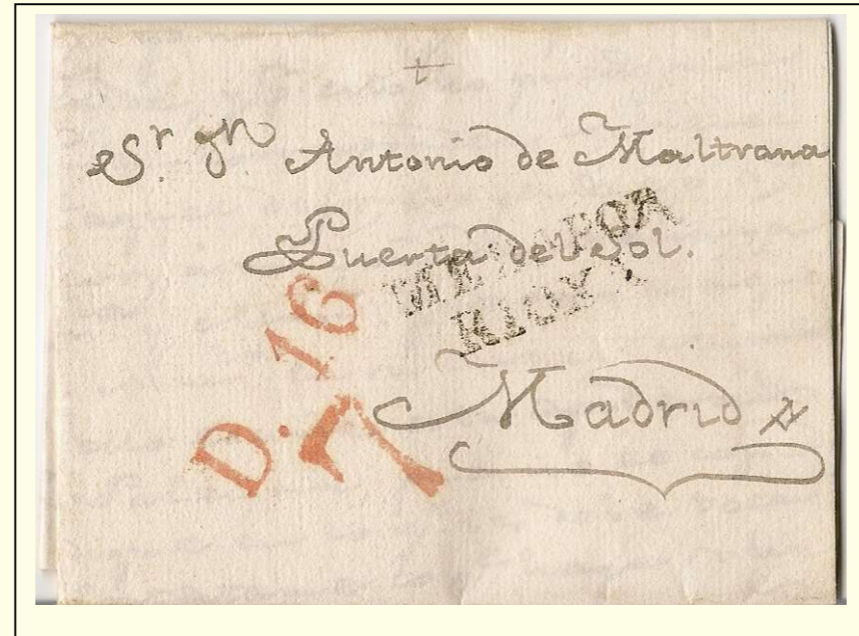 Sr. Dn Antonio de Maltrana
Puerta del Sol.
RIOXA
D. 16
7
Madrid